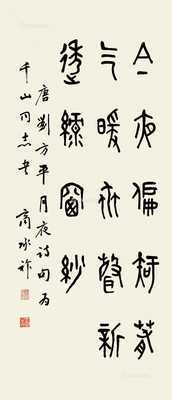 今夜偏知春
气暖虫声新
透绿窗纱
唐劉方平月夜诗句为
千山同志书 商承祚